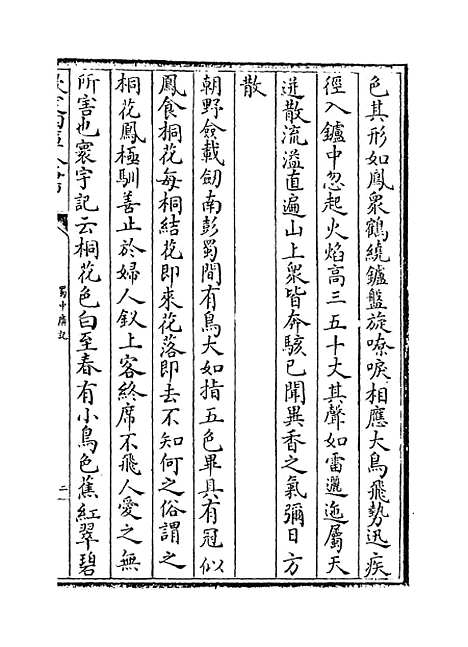 色其形如鳳衆鶴繞鑪盤旋嘹唳相應大鳥飛勢迅疾
徑入鑪中忽起火焰高三五十丈其聲如雷邐迤屬天
迸散流溢直遍山上衆皆奔駭已聞異香之氣彌日方
散
朝野僉載劒南彭蜀間有鳥大如指五色畢具有冠似
鳳食桐花每桐結花即來花落即去不知何之俗謂之
桐花鳳極馴善止於婦人釵上客終席不飛人愛之無
所害也寰宇記云桐花色白至春有小鳥色蕉紅翠碧
蜀中廣記